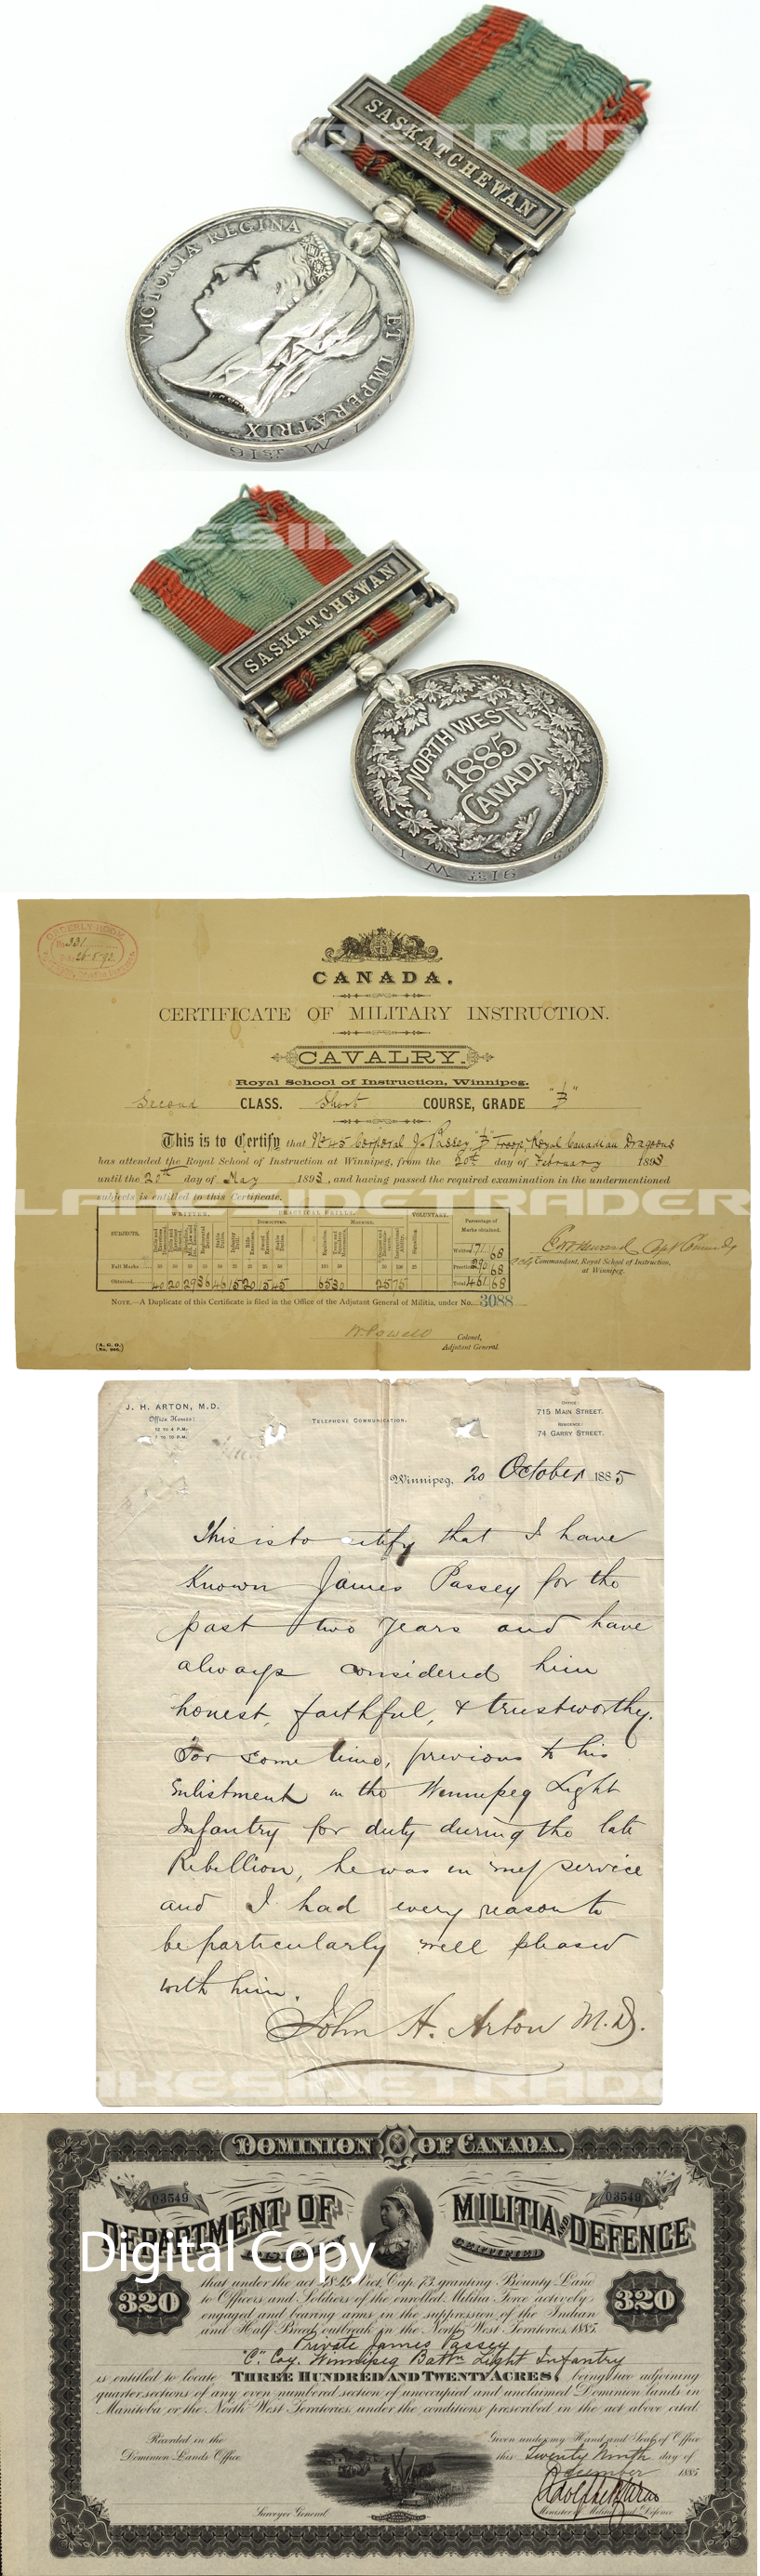 SASKATCHEWAN
VICTORIA REGINA
ET IMPERATRIX
91ST W. L. I.
LAKESIDETRADER
SASKATCHEWAN
NORTH WEST
1885
CANADA
91ST W. L. I.
ORDERLY ROOM
No. 331
CANADA.
CERTIFICATE OF MILITARY INSTRUCTION.
CAVALRY.
Royal School of Instruction, Winnipeg.
Second CLASS. Short COURSE, GRADE "B"
This is to Certify that No 45 Corporal J. Passey, "B" Troop, Royal Canadian Dragoons
has attended the Royal School of Instruction at Winnipeg, from the 20th day of February 1893
until the 20th day of May 1893, and having passed the required examination in the undermentioned
subjects is entitled to this Certificate.
LAKESIDETRADER
WRITTEN. PRACTICAL DRILLS. VOLUNTARY.
SUBJECTS. Dismounted. Mounted. Percentage of Marks obtained.
Full Marks
Obtained
Written 171 68
Practical 290 68
Total 461 68
Commandant, Royal School of Instruction,
at Winnipeg.
NOTE.—A Duplicate of this Certificate is filed in the Office of the Adjutant General of Militia, under No. 3088
W. Powell Colonel,
Adjutant General.
J. H. ARTON, M.D.
Office Hours:
12 TO 4 P.M.
7 TO 10 P.M.
TELEPHONE COMMUNICATION.
OFFICE:
715 MAIN STREET.
RESIDENCE:
74 GARRY STREET.
Winnipeg, 20 October 1885
This is to certify that I have
Known James Passey for the
past two years and have
always considered him
honest, faithful, & trustworthy.
For some time, previous to his
Enlistment in the Winnipeg Light
Infantry for duty during the late
Rebellion, he was in my service
and I had every reason to
be particularly well pleased
with him.
John H. Arton M.D.
LAKESIDETRADER
DOMINION OF CANADA.
03549 03549
DEPARTMENT OF MILITIA AND DEFENCE
Digital Copy
IT IS HEREBY CERTIFIED
that under the act 48.49 Vict. Cap. 73. granting Bounty Land
320 to Officers and Soldiers of the enrolled Militia Force actively 320
engaged and bearing arms in the suppression of the Indian
and Half Breed outbreak in the North West Territories, 1885.
Private James Passey
"C" Coy. Winnipeg Battn Light Infantry
is entitled to locate THREE HUNDRED AND TWENTY ACRES, being two adjoining
quarter sections of any even numbered section of unoccupied and unclaimed Dominion lands in
Manitoba or the North West Territories, under the conditions prescribed in the act above cited.
Recorded in the
Dominion Lands Office.
Given under my Hand and Seal of Office
this Twenty Ninth day of
December 1885
Surveyor General
Minister of Militia and Defence